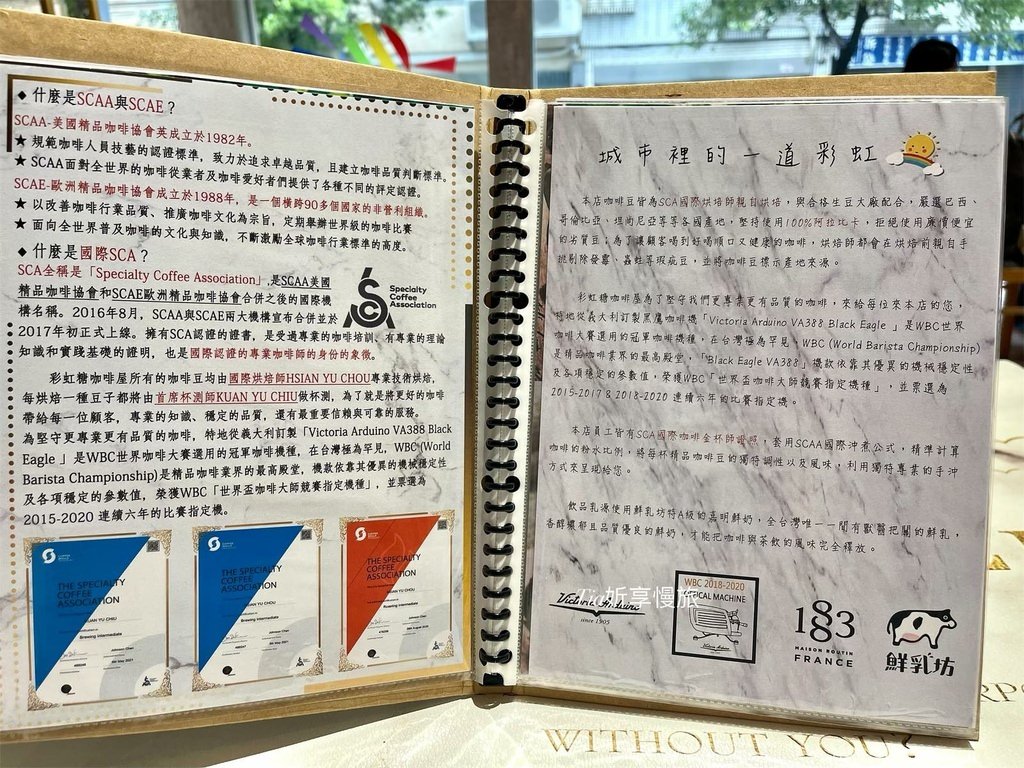 ◆ 什麼是SCAA與SCAE？
SCAA-美國精品咖啡協會英成立於1982年。
★ 規範咖啡人員技藝的認證標準，致力於追求卓越品質，且建立咖啡品質判斷標準。
★ SCAA面對全世界的咖啡從業者及咖啡愛好者們提供了各種不同的評定認證。
SCAE-歐洲精品咖啡協會成立於1988年，是一個橫跨90多個國家的非營利組織。
★ 以改善咖啡行業品質、推廣咖啡文化為宗旨，定期舉辦世界級的咖啡比賽
★ 面向全世界普及咖啡的文化與知識，不斷激勵全球咖啡行業標準的高度。
◆ 什麼是國際SCA？
SCA全稱是「Specialty Coffee Association」,是SCAA美國
精品咖啡協會和SCAE歐洲精品咖啡協會合併之後的國際機
構名稱。2016年8月，SCAA與SCAE兩大機構宣布合併並於
2017年初正式上線。擁有SCA認證的證書，是受過專業的咖啡培訓、有專業的理論
知識和實踐基礎的證明，也是國際認證的專業咖啡師的身份的象徵。
Specialty
Coffee
Association
彩虹糖咖啡屋所有的咖啡豆均由國際烘焙師HSIAN YU CHOU專業技術烘焙，
每烘焙一種豆子都將由首席杯測師KUAN YU CHIU做杯測，為了就是將更好的咖啡
帶給每一位顧客，專業的知識、穩定的品質，還有最重要信賴與可靠的服務。
為堅守更專業更有品質的咖啡，特地從義大利訂製「Victoria Arduino VA388 Black
Eagle 」是WBC世界咖啡大賽選用的冠軍咖啡機種，在台灣極為罕見，WBC (World
Barista Championship)是精品咖啡業界的最高殿堂，機款依靠其優異的機械穩定性
及各項穩定的參數值，榮獲WBC「世界盃咖啡大師競賽指定機種」，並票選為
2015-2020 連續六年的比賽指定機。
THE SPECIALTY
COFFEE
ASSOCIATION
KUAN YU CHIU
Brewing Intermediate
THE SPECIALTY
COFFEE
ASSOCIATION
KUAN YU CHIU
Brewing Intermediate
THE SPECIALTY
COFFEE
ASSOCIATION
Roasting Intermediate
城市裡的一道彩虹
本店咖啡豆皆為SCA國際烘焙師親自烘培，與合格生豆大廠配合，嚴選巴西、
哥倫比亞、坦尚尼亞等等各國產地，堅持使用100%阿拉比卡，拒絕使用廉價便宜
的劣質豆；為了讓顧客喝到好喝順口又健康的咖啡，烘焙師都會在烘焙前親自手
挑剔除發霉、蟲蛀等瑕疵豆，並將咖啡豆標示產地來源。
彩虹糖咖啡屋為了堅守我們更專業更有品質的咖啡，來給每位來本店的您，
特地從義大利訂製黑鷹咖啡機「Victoria Arduino VA388 Black Eagle 」是WBC世界
咖啡大賽選用的冠軍咖啡機種，在台灣極為罕見，WBC (World Barista Championship)
是精品咖啡業界的最高殿堂，「Black Eagle VA388」機款依靠其優異的機械穩定性
及各項穩定的參數值，榮獲WBC「世界盃咖啡大師競賽指定機種」，並票選為
2015-2017 & 2018-2020 連續六年的比賽指定機。
本店員工皆有SCA國際咖啡金杯師證照，套用SCAA國際沖煮公式，精準計算
咖啡的粉水比例，將每杯精品咖啡豆的獨特調性以及風味，利用獨特專業的手沖
方式來呈現給您。
飲品乳源使用鮮乳坊特A級的嘉明鮮奶，全台灣唯一一間有獸醫把關的鮮乳，
香醇濃郁且品質優良的鮮奶，才能把咖啡與茶飲的風味完全釋放。
Victoria Arduino
since 1905
WBC 2018-2020
MACHINE
1883
MAISON ROUTIN
FRANCE
鮮乳坊
妡享慢旅
WITHOUT YOU?